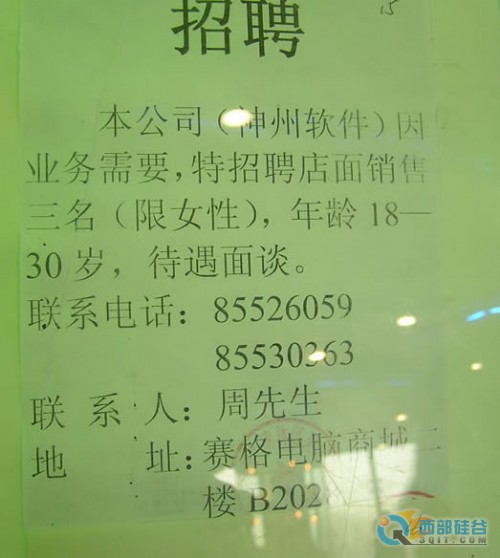 15
招聘
本公司（神州软件）因
业务需要，特招聘店面销售
三名（限女性），年龄 18—
30 岁，待遇面谈。
联系电话：85526059
85530363
联 系 人：周先生
地 址：赛格电脑商城二
楼 B202
西部硅谷
3QIT.COM